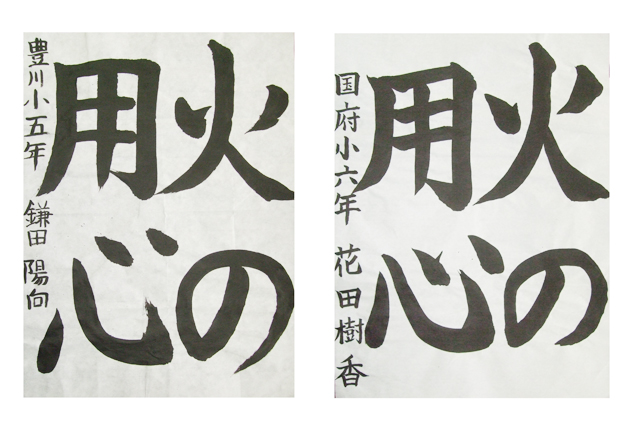 火の
用心
豊川小五年 鎌田陽向
火の
用心
国府小六年 花田樹香